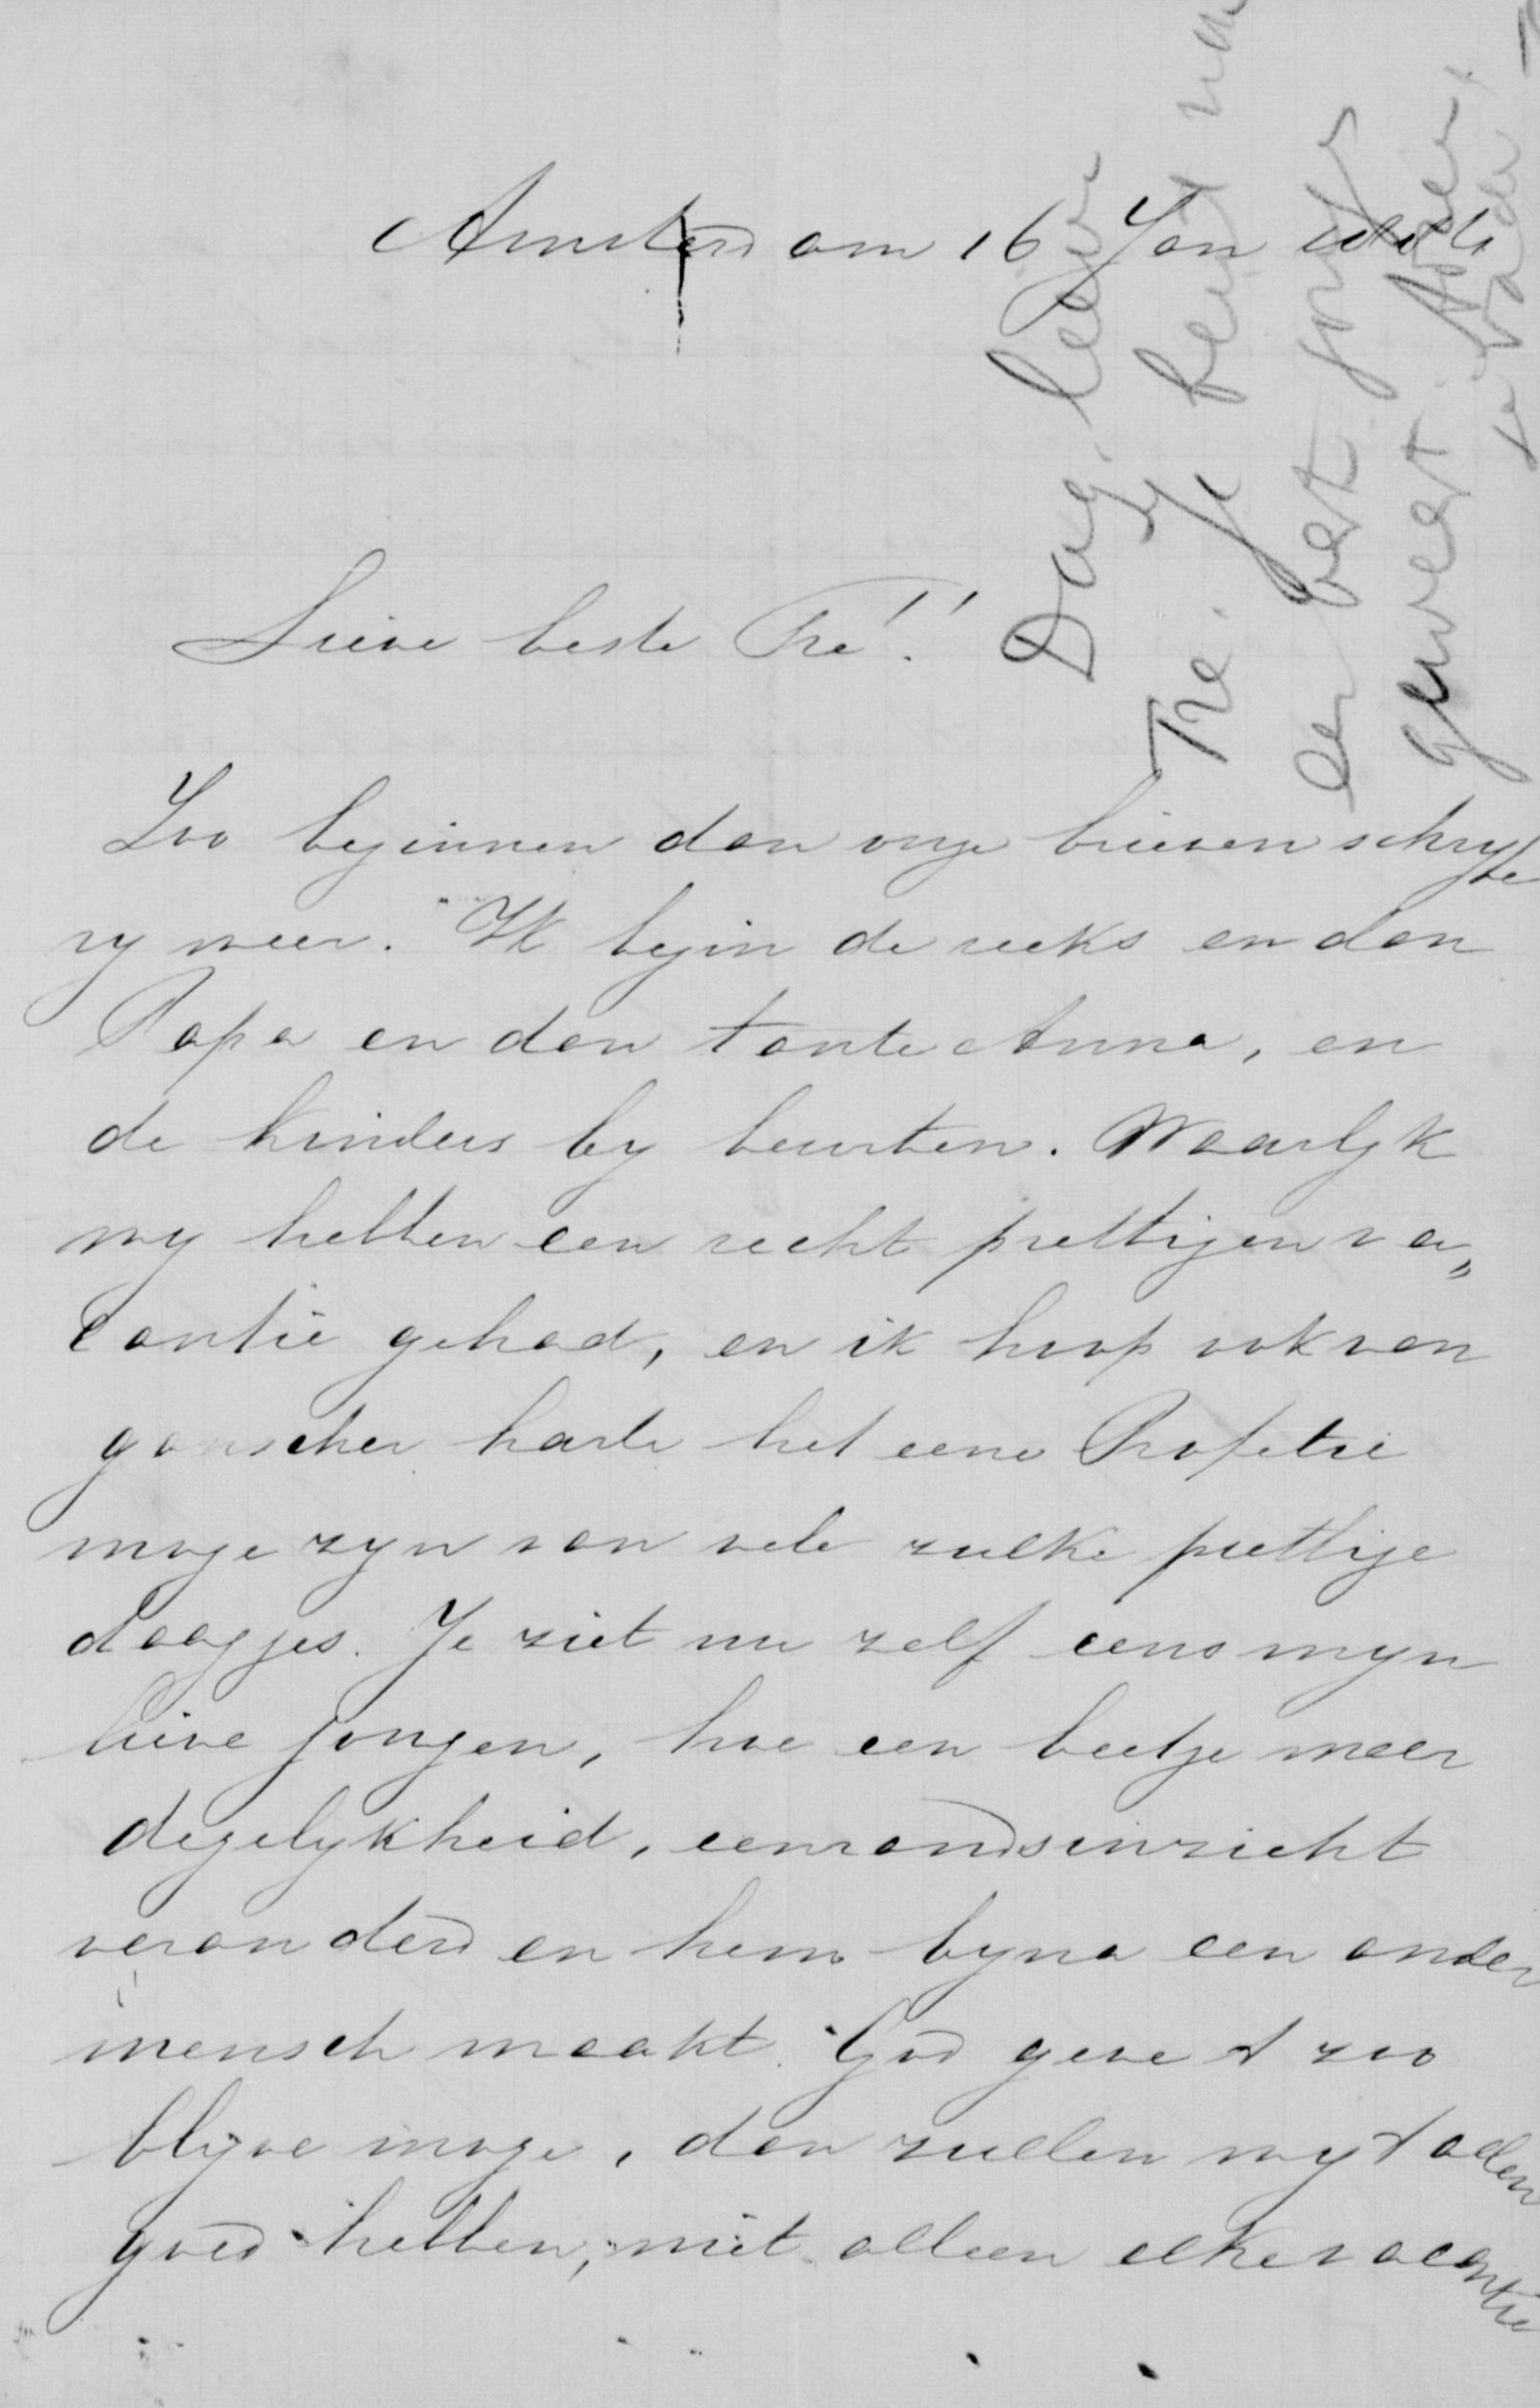 Amsterdam 16 Jan
Lieve beste Fré!!
Zoo beginnen dan onze brieven schryve
ry weer. Ik begin de reeks en dan
Papa en dan tante Anna, en
de kinders by beurten. Waarlyk
wy hebben een recht prettigen va„
cantie gehad, en ik hoop ook van
ganscher harte het eene Profetie
moge zyn van vele zulke prettige
daagjes. Je ziet nu zelf eens myn
lieve jongen, hoe een beetje meer
degelykheid, eemands inzicht
veranderd en hem byna een ander
mensch maakt. God geve 't zoo
blyve moge, dan zullen wy 't allen
goed hebben, niet alleen elke vacantie
Dag lieve
Fré. Je bent
een best jonge
geweest.
je Vader